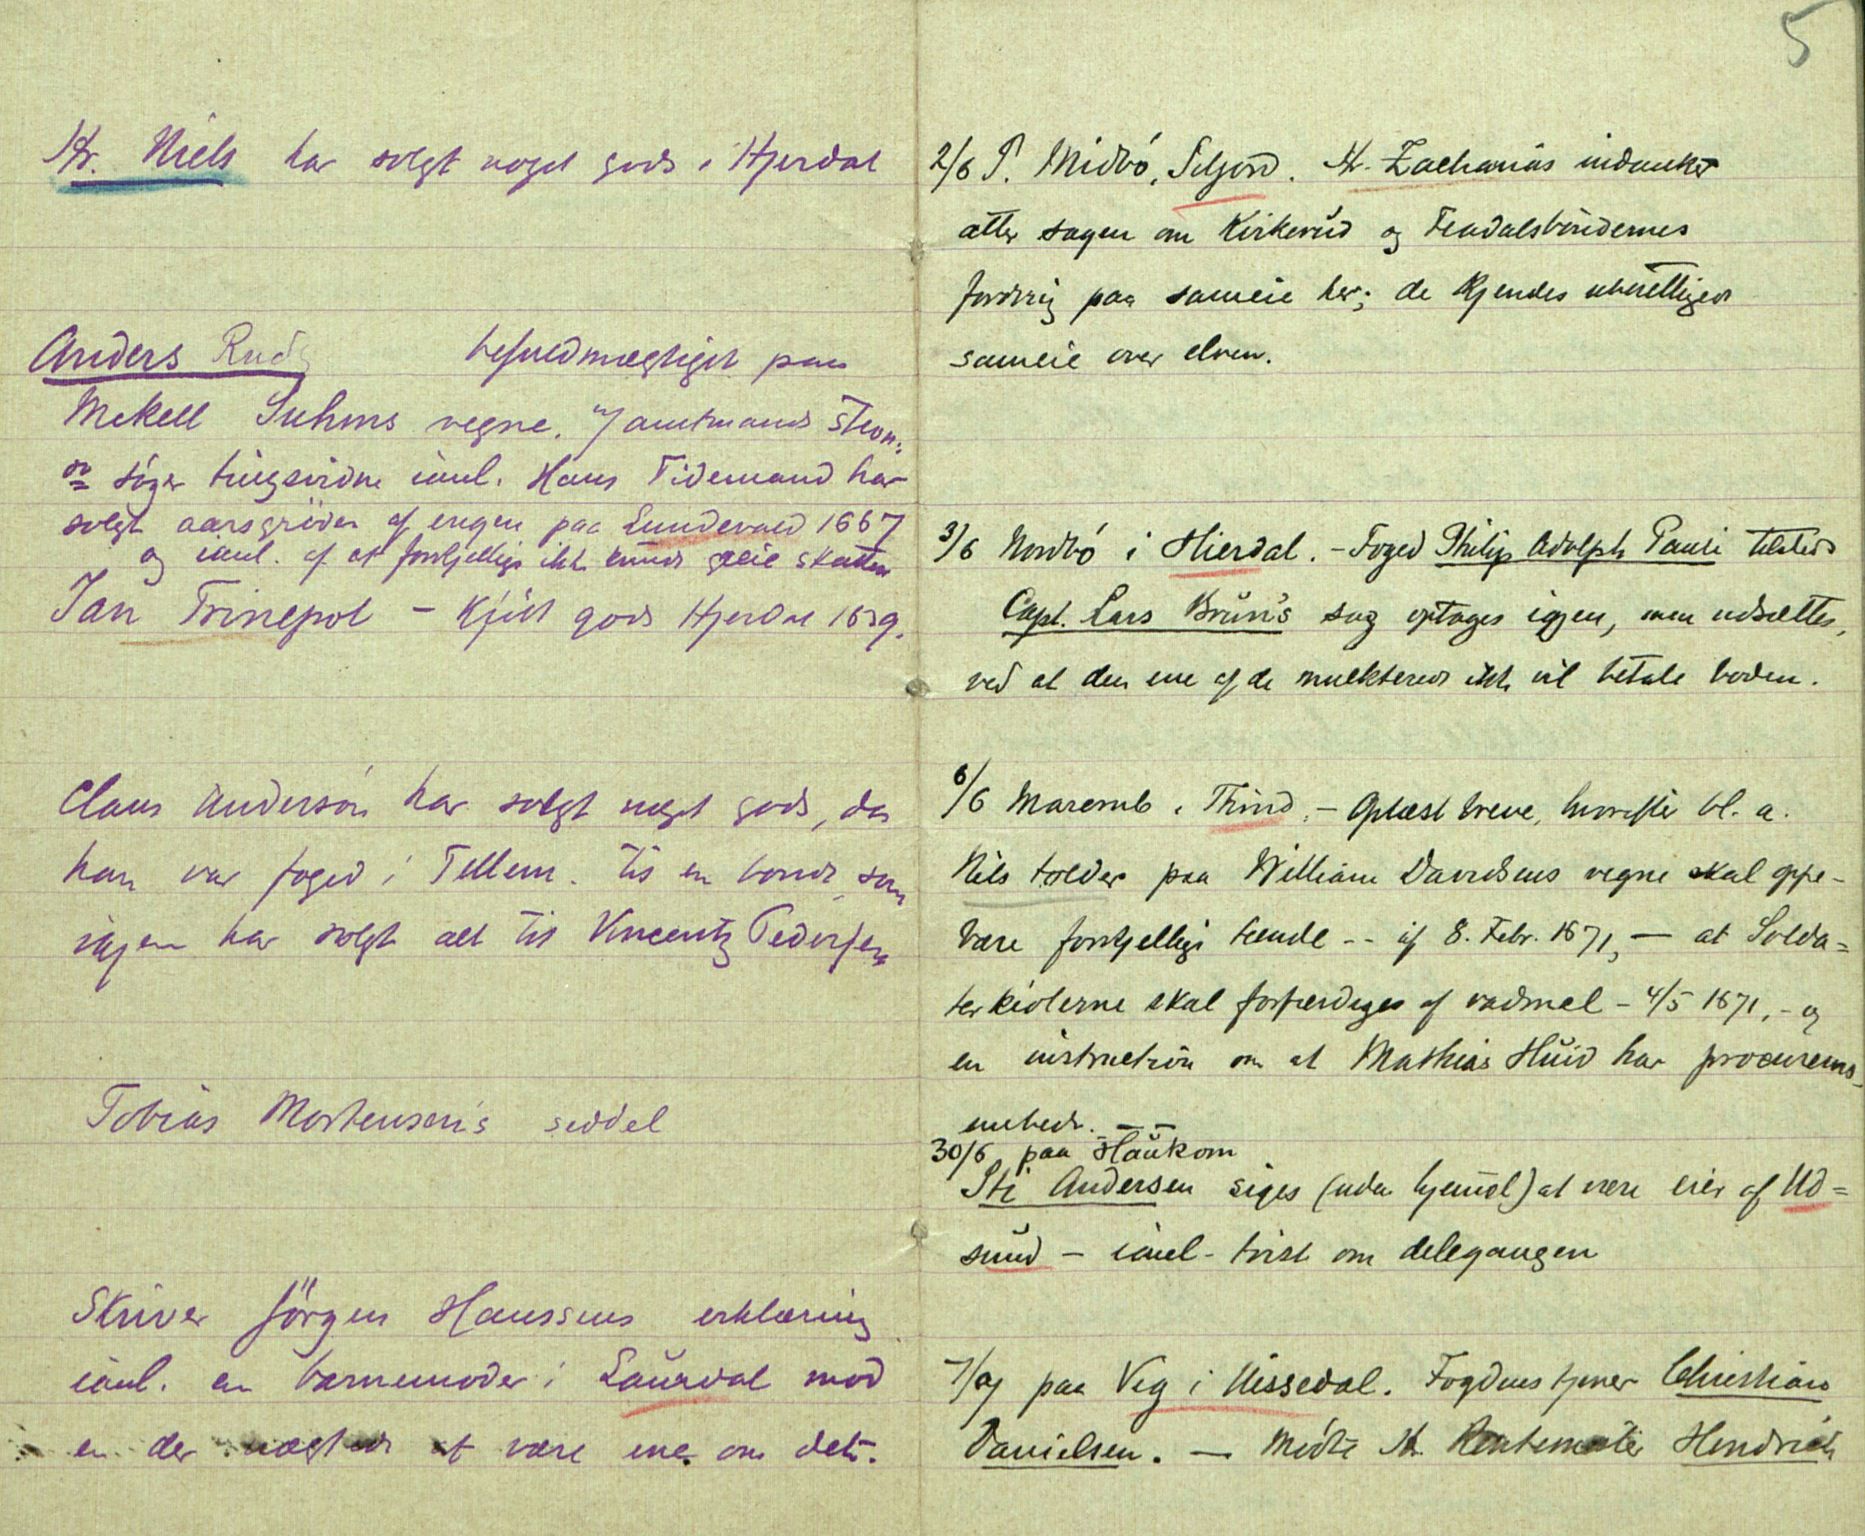 Hr. Niels har solgt noget gods i Hjerdal
Anders Rud befuldmægtiget paa
Mekell Suhms vegne. amtmands
søger tingsvidne i anl. Hans Tidemand har
solgt aarsgrøden af engen paa Lundevald 1667
og i anl. af at forskjellige ikke kunde skatten
Jan Trinepol - Kjøbt gods Hjerdal 1659.
Claus Andersøn har solgt noget gods, da
han var foged i Tellem. til en bonde, som
igjen har solgt alt til Vincentz Pedersen
Tobias Mortensøns seddel
Skriver Jörgen Hanssens erklæring
i anl. en barnemoder i Laurdal mod
en der nægtede at være ene om det.
5
2/6 P. Midbö, Seljord. Hr. Zacharias indanket
atter sagen om Kirkerud og
fordring paa sameie her; de kjendes uberettiget
sameie over elven.
3/6 Nordbö i Hierdal. - Foged Philip Adolph Pauli tilsteds
Capt. Lars Brün's sag optages igjen, men udsættes,
ved at den ene af de mulkterede ikke vil betale boden.
6/6 Maremb i Thind. - Oplæst breve, hvorefter bl. a.
Nils tolder paa William Davidsens vegne skal oppe-
bære forskjellige tiende -- af 8. Febr. 1671, — at Solda=
terkiolerne skal forfærdiges af vadmel - 4/5 1671, - og
en instruction om at Mathias Hüid har
embede. — —
30/6 paa Haükom
Sti Andersen siges (uden hjemmel) at være eier af Ud=
sund - i anl. tvist om delegangen
7/9 paa Vig i Nissedal. Fogdens tjener Christian
Danielsen. — Mödte Hr. Rentemester Hendrich